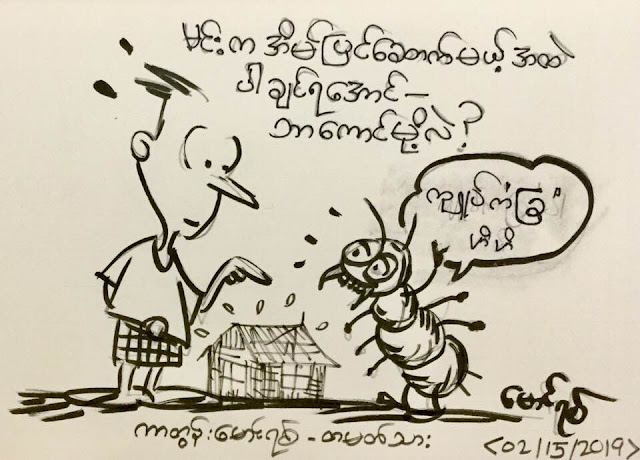 မင်းက အိမ်ပြင်ဆောက်မယ့် အထဲ
ပါချင်ရအောင် -
ဘာကောင်မို့လဲ ?
ကျုပ်က "ခြ"
ဟီးဟီး
ကာတွန်းမောင်ရစ် - တမတ်သား
မောင်ရစ်
<02/15/2019>